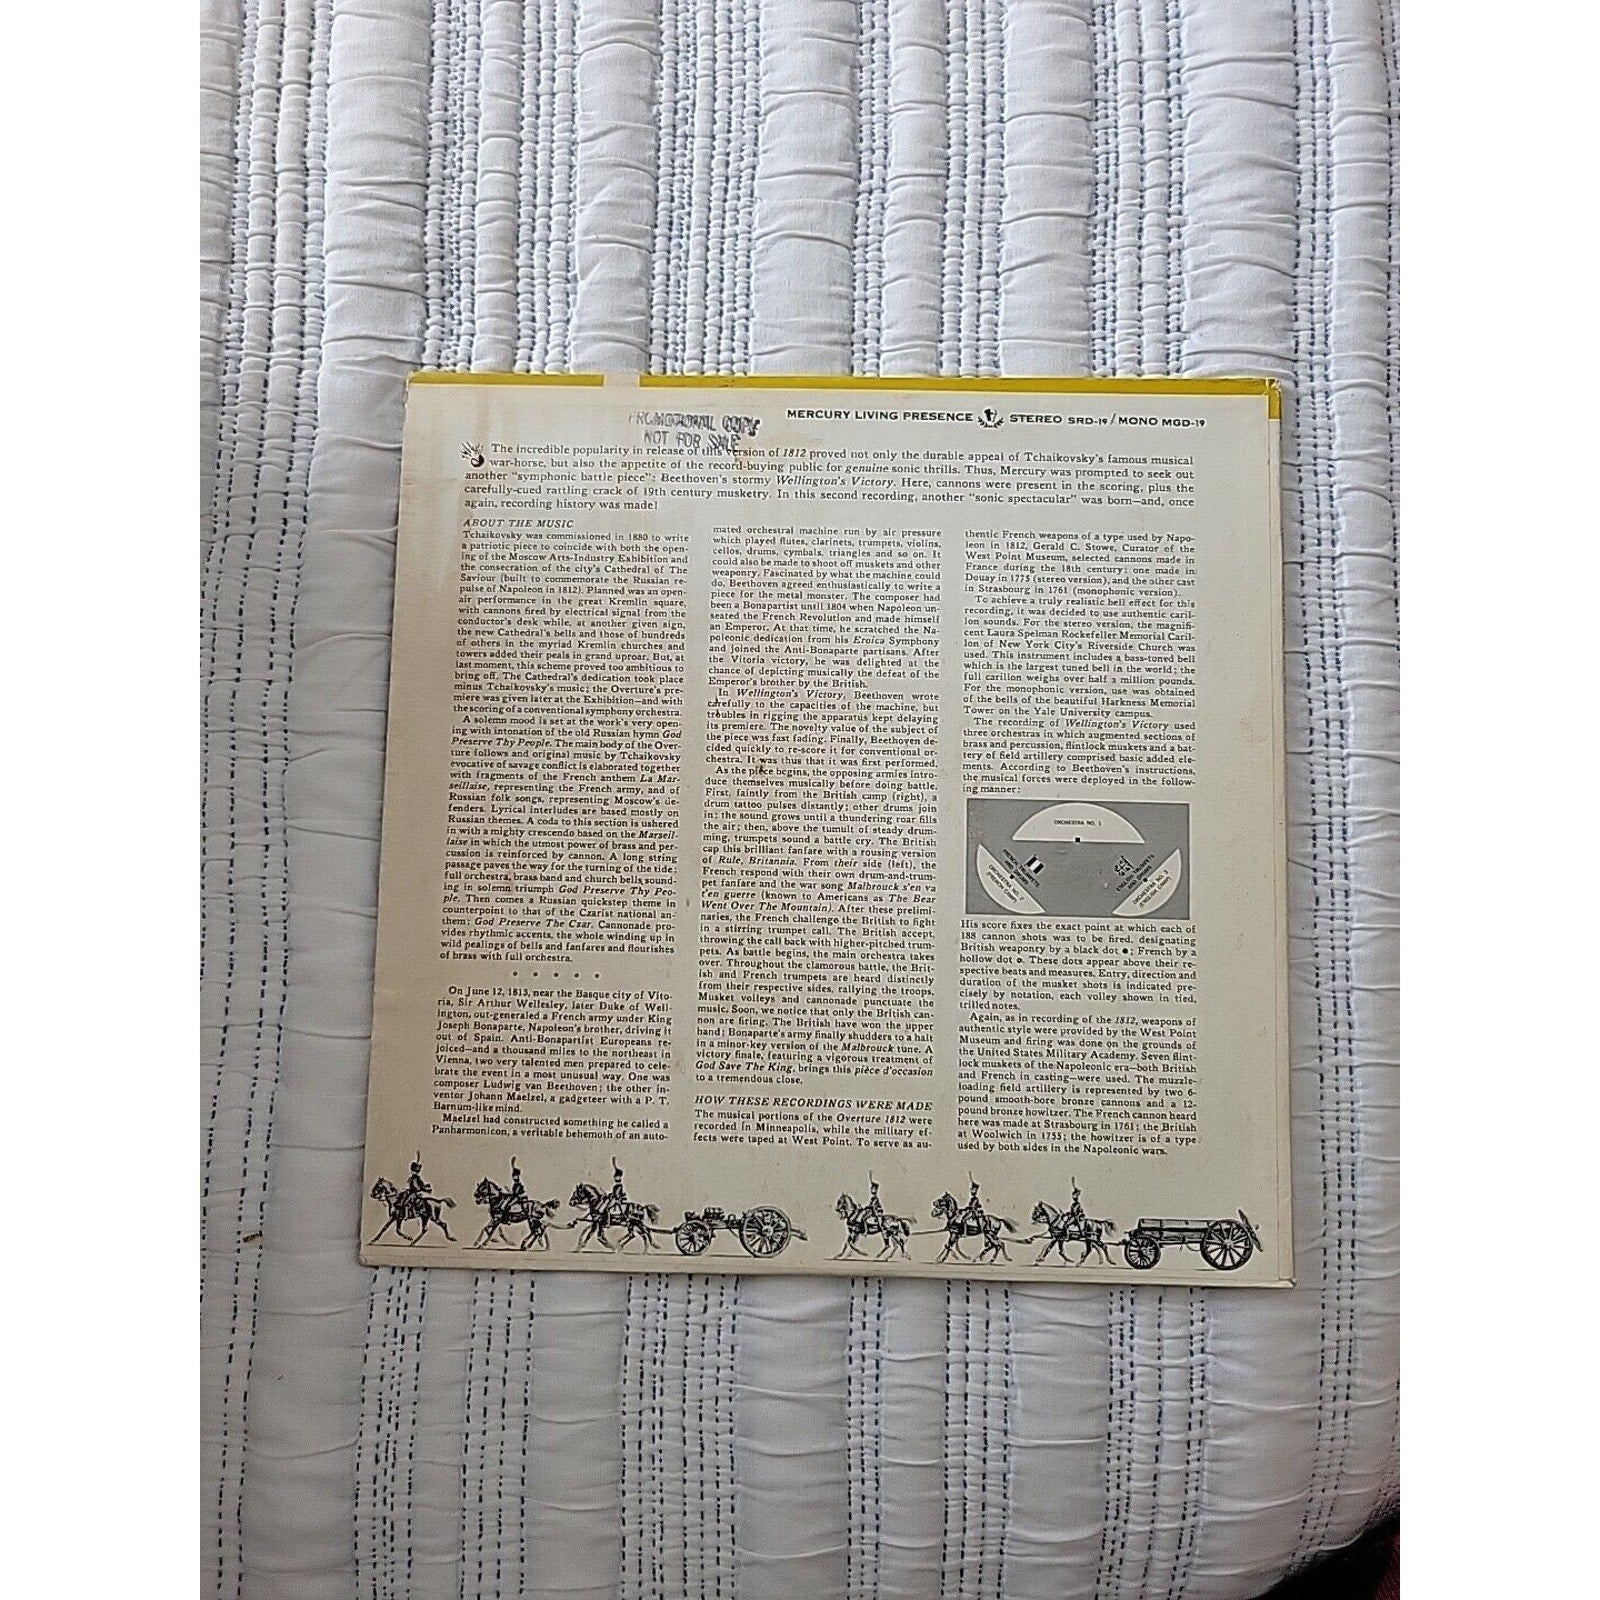 MERCURY LIVING PRESENCE STEREO SRD-19/MONO MGD-19
PROMOTIONAL COPY
NOT FOR SALE
The incredible popularity in release of this version of 1812 proved not only the durable appeal of Tchaikovsky's famous musical
war-horse, but also the appetite of the record-buying public for genuine sonic thrills. Thus, Mercury was prompted to seek out
another "symphonic battle piece": Beethoven's stormy Wellington's Victory. Here, cannons were present in the scoring, plus the
carefully-cued rattling crack of 19th century musketry. In this second recording, another "sonic spectacular" was born—and, once
again, recording history was made!
ABOUT THE MUSIC
Tchaikovsky was commissioned in 1880 to write
a patriotic piece to coincide with both the open-
ing of the Moscow Arts-Industry Exhibition and
the consecration of the city's Cathedral of The
Saviour (built to commemorate the Russian re-
pulse of Napoleon in 1812). Planned was an open-
air performance in the great Kremlin square,
with cannons fired by electrical signal from the
conductor's desk while, at another given sign,
the new Cathedral's bells and those of hundreds
of others in the myriad Kremlin churches and
towers added their peals in grand uproar. But, at
last moment, this scheme proved too ambitious to
bring off. The Cathedral's dedication took place
minus Tchaikovsky's music; the Overture's pre-
miere was given later at the Exhibition—and with
the scoring of a conventional symphony orchestra.
A solemn mood is set at the work's very open-
ing with intonation of the old Russian hymn God
Preserve Thy People. The main body of the Over-
ture follows and original music by Tchaikovsky
evocative of savage conflict is elaborated together
with fragments of the French anthem La Mar-
seillaise, representing the French army, and of
Russian folk songs, representing Moscow's de-
fenders. Lyrical interludes are based mostly on
Russian themes. A coda to this section is ushered
in with a mighty crescendo based on the Marseil-
laise in which the utmost power of brass and per-
cussion is reinforced by cannon. A long string
passage paves the way for the turning of the tide:
full orchestra, brass band and church bells sound-
ing in solemn triumph God Preserve Thy Peo-
ple. Then comes a Russian quickstep theme in
counterpoint to that of the Czarist national an-
them: God Preserve The Czar. Cannonade pro-
vides rhythmic accents, the whole winding up in
wild pealings of bells and fanfares and flourishes
of brass with full orchestra.
* * * * *
On June 12, 1813, near the Basque city of Vito-
ria, Sir Arthur Wellesley, later Duke of Well-
ington, out-generaled a French army under King
Joseph Bonaparte, Napoleon's brother, driving it
out of Spain. Anti-Bonapartist Europeans re-
joiced—and a thousand miles to the northeast in
Vienna, two very talented men prepared to cele-
brate the event in a most unusual way. One was
composer Ludwig van Beethoven; the other in-
ventor Johann Maelzel, a gadgeteer with a P. T.
Barnum-like mind.
Maelzel had constructed something he called a
Panharmonicon, a veritable behemoth of an auto-
mated orchestral machine run by air pressure
which played flutes, clarinets, trumpets, violins,
cellos, drums, cymbals, triangles and so on. It
could also be made to shoot off muskets and other
weaponry. Fascinated by what the machine could
do, Beethoven agreed enthusiastically to write a
piece for the metal monster. The composer had
been a Bonapartist until 1804 when Napoleon un-
seated the French Revolution and made himself
an Emperor. At that time, he scratched the Na-
poleonic dedication from his Eroica Symphony
and joined the Anti-Bonaparte partisans. After
the Vitoria victory, he was delighted at the
chance of depicting musically the defeat of the
Emperor's brother by the British.
In Wellington's Victory, Beethoven wrote
carefully to the capacities of the machine, but
troubles in rigging the apparatus kept delaying
its premiere. The novelty value of the subject of
the piece was fast fading. Finally, Beethoven de-
cided quickly to re-score it for conventional or-
chestra. It was thus that it was first performed.
As the piece begins, the opposing armies intro-
duce themselves musically before doing battle.
First, faintly from the British camp (right), a
drum tattoo pulses distantly; other drums join
in; the sound grows until a thundering roar fills
the air; then, above the tumult of steady drum-
ming, trumpets sound a battle cry. The British
cap this brilliant fanfare with a rousing version
of Rule, Britannia. From their side (left), the
French respond with their own drum-and-trum-
pet fanfare and the war song Malbrouck s'en va
t'en guerre (known to Americans as The Bear
Went Over The Mountain). After these prelimi-
naries, the French challenge the British to fight
in a stirring trumpet call. The British accept,
throwing the call back with higher-pitched trum-
pets. As battle begins, the main orchestra takes
over. Throughout the clamorous battle, the Brit-
ish and French trumpets are heard distinctly
from their respective sides, rallying the troops.
Musket volleys and cannonade punctuate the
music. Soon, we notice that only the British can-
non are firing. The British have won the upper
hand; Bonaparte's army finally shudders to a halt
in a minor-key version of the Malbrouck tune. A
victory finale, featuring a vigorous treatment of
God Save The King, brings this pièce d'occasion
to a tremendous close.
HOW THESE RECORDINGS WERE MADE
The musical portions of the Overture 1812 were
recorded in Minneapolis, while the military ef-
fects were taped at West Point. To serve as au-
thentic French weapons of a type used by Napo-
leon in 1812, Gerald C. Stowe, Curator of the
West Point Museum, selected cannons made in
France during the 18th century: one made in
Douay in 1775 (stereo version), and the other cast
in Strasbourg in 1761 (monophonic version).
To achieve a truly realistic bell effect for this
recording, it was decided to use authentic caril-
lon sounds. For the stereo version, the magnifi-
cent Laura Spelman Rockefeller Memorial Caril-
lon of New York City's Riverside Church was
used. This instrument includes a bass-toned bell
which is the largest tuned bell in the world; the
full carillon weighs over half a million pounds.
For the monophonic version, use was obtained
of the bells of the beautiful Harkness Memorial
Tower on the Yale University campus.
The recording of Wellington's Victory used
three orchestras in which augmented sections of
brass and percussion, flintlock muskets and a bat-
tery of field artillery comprised basic added ele-
ments. According to Beethoven's instructions,
the musical forces were deployed in the follow-
ing manner:
ORCHESTRA NO. 1
FRENCH TRUMPETS
ORCHESTRA NO. 2
(FRENCH CAMP)
ENGLISH TRUMPETS
ORCHESTRA NO. 3
(ENGLISH CAMP)
His score fixes the exact point at which each of
188 cannon shots was to be fired, designating
British weaponry by a black dot ●; French by a
hollow dot o. These dots appear above their re-
spective beats and measures. Entry, direction and
duration of the musket shots is indicated pre-
cisely by notation, each volley shown in tied,
trilled notes.
Again, as in recording of the 1812, weapons of
authentic style were provided by the West Point
Museum and firing was done on the grounds of
the United States Military Academy. Seven flint-
lock muskets of the Napoleonic era—both British
and French in casting—were used. The muzzle-
loading field artillery is represented by two 6-
pound smooth-bore bronze cannons and a 12-
pound bronze howitzer. The French cannon heard
here was made at Strasbourg in 1761; the British
at Woolwich in 1755; the howitzer is of a type
used by both sides in the Napoleonic wars.